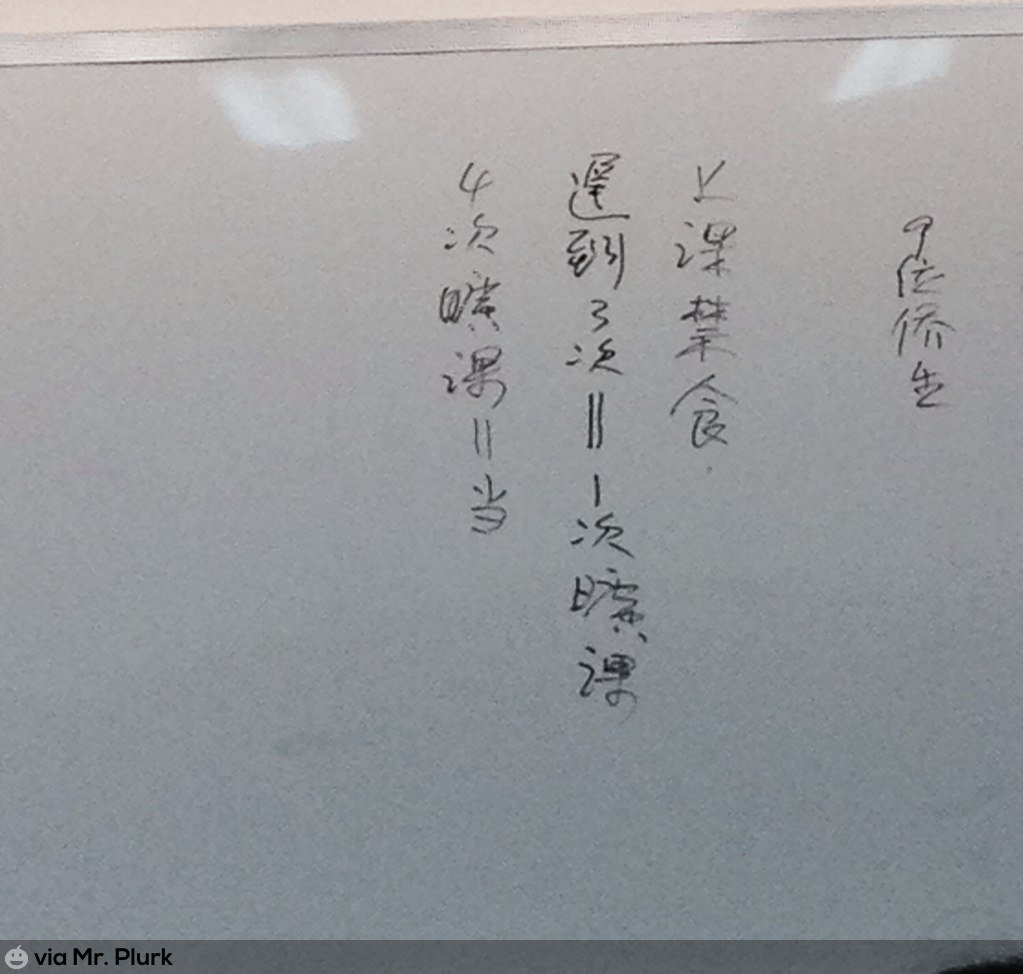 9位侨生
上课禁食
遲到3次=1次曠课
4次曠课=当
via Mr. Plurk